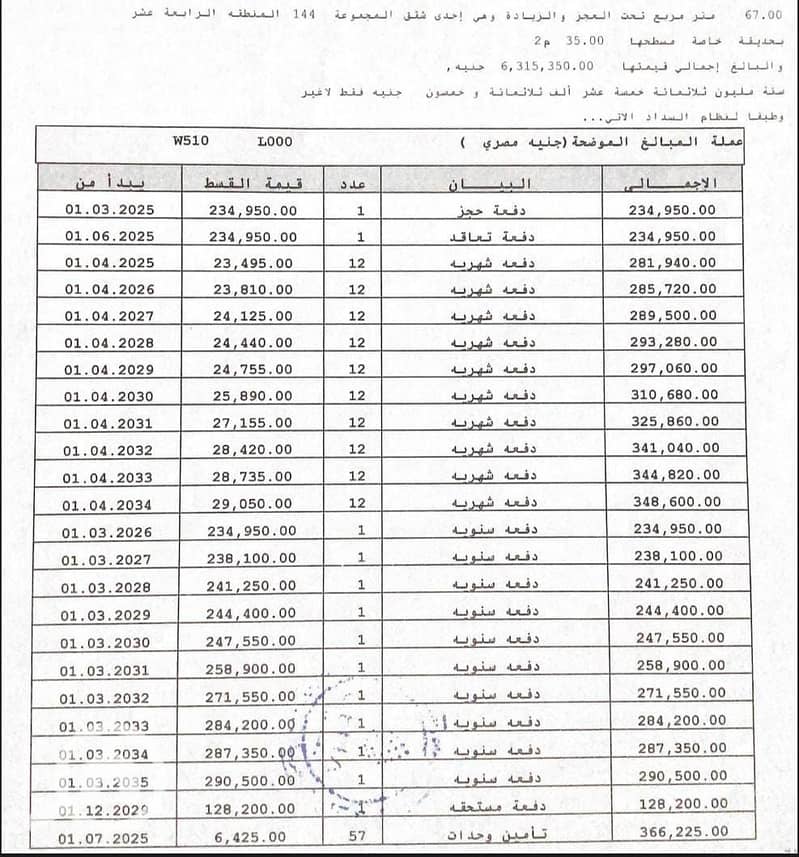 67.00 متر مربع تحت العجز والزيادة وهى إحدى شقق المجموعة 144 المنطقه الرابعة عشر
بحديقة خاصة مسطحها 35.00 م2
والبالغ إجمالي قيمتها 6,315,350.00 جنيه,
ستة مليون ثلاثمائة خمسة عشر ألف ثلاثمائة و خمسون جنيه فقط لاغير
وطبقا لنظام السداد الاتي...
عملة المبالغ الموضحة (جنيه مصري ) L000 W510
الإجمـــالى البيـــان عدد قيمة القسط يبدأ من
234,950.00 دفعة حجز 1 234,950.00 01.03.2025
234,950.00 دفعة تعاقد 1 234,950.00 01.06.2025
281,940.00 دفعه شهريه 12 23,495.00 01.04.2025
285,720.00 دفعه شهريه 12 23,810.00 01.04.2026
289,500.00 دفعه شهريه 12 24,125.00 01.04.2027
293,280.00 دفعه شهريه 12 24,440.00 01.04.2028
297,060.00 دفعه شهريه 12 24,755.00 01.04.2029
310,680.00 دفعه شهريه 12 25,890.00 01.04.2030
325,860.00 دفعه شهريه 12 27,155.00 01.04.2031
341,040.00 دفعه شهريه 12 28,420.00 01.04.2032
344,820.00 دفعه شهريه 12 28,735.00 01.04.2033
348,600.00 دفعه شهريه 12 29,050.00 01.04.2034
234,950.00 دفعه سنويه 1 234,950.00 01.03.2026
238,100.00 دفعه سنويه 1 238,100.00 01.03.2027
241,250.00 دفعه سنويه 1 241,250.00 01.03.2028
244,400.00 دفعه سنويه 1 244,400.00 01.03.2029
247,550.00 دفعه سنويه 1 247,550.00 01.03.2030
258,900.00 دفعه سنويه 1 258,900.00 01.03.2031
271,550.00 دفعه سنويه 1 271,550.00 01.03.2032
284,200.00 دفعه سنويه 1 284,200.00 01.03.2033
287,350.00 دفعه سنويه 1 287,350.00 01.03.2034
290,500.00 دفعه سنويه 1 290,500.00 01.03.2035
128,200.00 دفعة مستحقه 1 128,200.00 01.12.2029
366,225.00 تأمين وحدات 57 6,425.00 01.07.2025